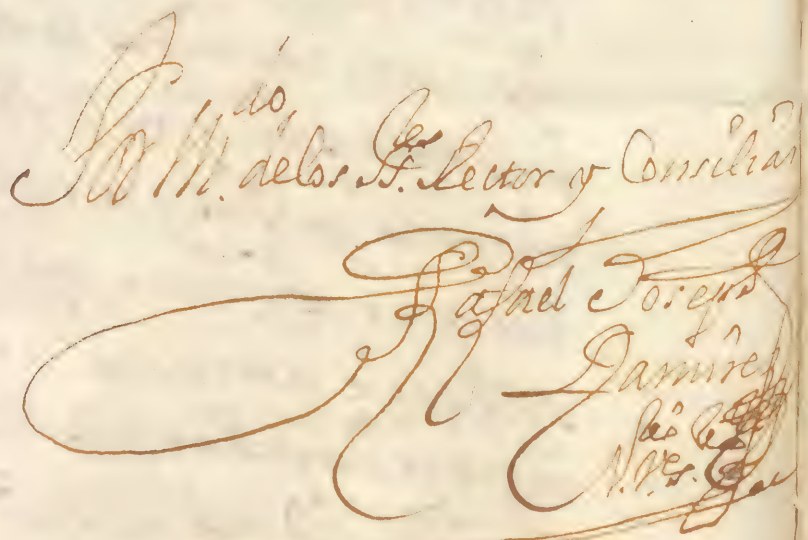 Por M.do de los SS.res Rector y Consiliar
Rafael Joseph
Ramires